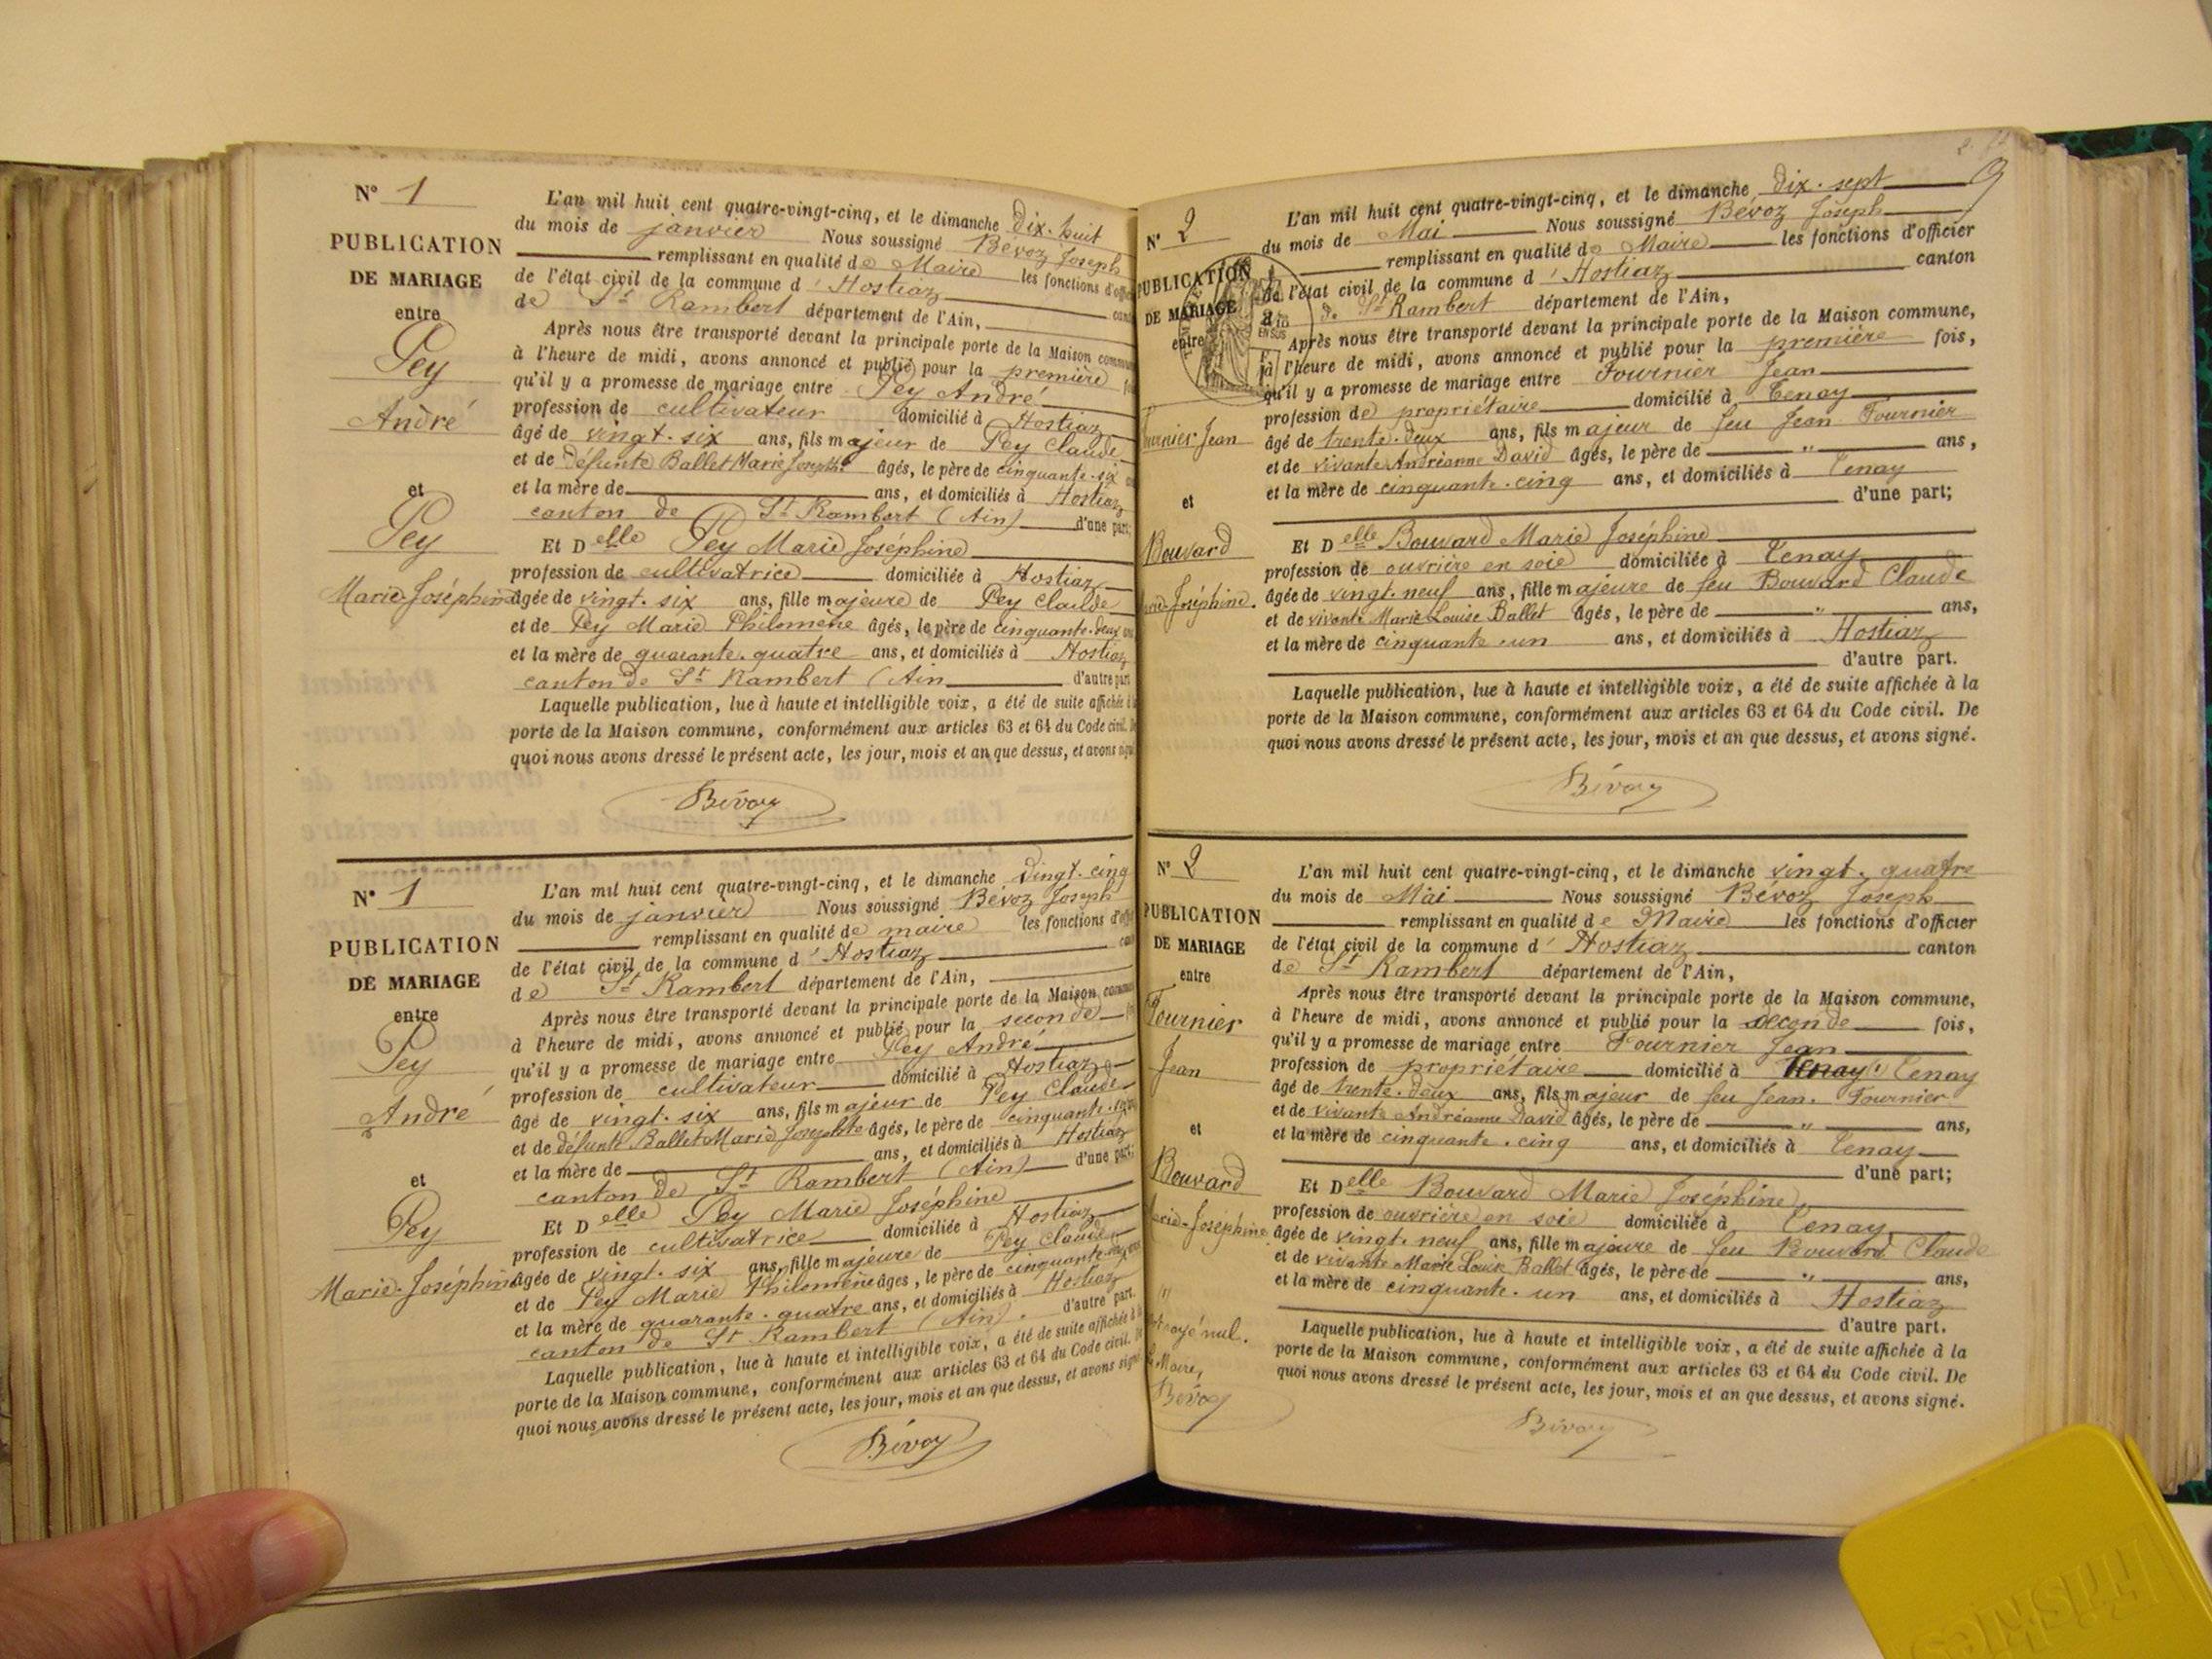 N° 1
PUBLICATION
DE MARIAGE
entre
Pey
André
et
Pey
Marie-Joséphine
L'an mil huit cent quatre-vingt-cinq, et le dimanche dix-huit
du mois de janvier Nous soussigné Bévoz Joseph
remplissant en qualité de Maire les fonctions d'offi
de l'état civil de la commune d'Hostiaz can
de St Rambert département de l'Ain,
Après nous être transporté devant la principale porte de la Maison commu
à l'heure de midi, avons annoncé et publié pour la première
qu'il y a promesse de mariage entre Pey André
profession de cultivateur domicilié à Hostiaz
âgé de vingt-six ans, fils majeur de Pey Claude
et de défunte Ballet Marie Josephte âgés, le père de cinquante-six
et la mère de ans, et domiciliés à Hostiaz
canton de St Rambert (Ain) d'une part;
Et Delle Pey Marie Joséphine
profession de cultivatrice domiciliée à Hostiaz
âgée de vingt-six ans, fille majeure de Pey Claude
et de Pey Marie Philomène âgés, le père de cinquante-deux
et la mère de quarante-quatre ans, et domiciliés à Hostiaz
canton de St Rambert (Ain d'autre part
Laquelle publication, lue à haute et intelligible voix, a été de suite affichée à
porte de la Maison commune, conformément aux articles 63 et 64 du Code civil.
quoi nous avons dressé le présent acte, les jour, mois et an que dessus, et avons
Bévoz
N° 1
PUBLICATION
DE MARIAGE
entre
Pey
André
et
Pey
Marie-Joséphine
L'an mil huit cent quatre-vingt-cinq, et le dimanche vingt-cinq
du mois de janvier Nous soussigné Bévoz Joseph
remplissant en qualité de maire les fonctions d'off
de l'état civil de la commune d'Hostiaz can
de St Rambert département de l'Ain,
Après nous être transporté devant la principale porte de la Maison commu
à l'heure de midi, avons annoncé et publié pour la seconde
qu'il y a promesse de mariage entre Pey André
profession de cultivateur domicilié à Hostiaz
âgé de vingt-six ans, fils majeur de Pey Claude
et de défunte Ballet Marie Josephte âgés, le père de cinquante-six
et la mère de ans, et domiciliés à Hostiaz
canton de St Rambert (Ain) d'une part;
Et Delle Pey Marie Joséphine
profession de cultivatrice domiciliée à Hostiaz
âgée de vingt-six ans, fille majeure de Pey Claude
et de Pey Marie Philomène âgés, le père de cinquante
et la mère de quarante-quatre ans, et domiciliés à Hostiaz
canton de St Rambert (Ain). d'autre part.
Laquelle publication, lue à haute et intelligible voix, a été de suite affichée à
porte de la Maison commune, conformément aux articles 63 et 64 du Code civil.
quoi nous avons dressé le présent acte, les jour, mois et an que dessus, et avons signé
Bévoz
N° 2
PUBLICATION
DE MARIAGE
entre
Fournier Jean
et
Bouvard
Marie-Joséphine.
L'an mil huit cent quatre-vingt-cinq, et le dimanche dix-sept
du mois de Mai Nous soussigné Bévoz Joseph
remplissant en qualité de Maire les fonctions d'officier
de l'état civil de la commune d'Hostiaz canton
de St Rambert département de l'Ain,
Après nous être transporté devant la principale porte de la Maison commune,
à l'heure de midi, avons annoncé et publié pour la première fois,
qu'il y a promesse de mariage entre Fournier Jean
profession de propriétaire domicilié à Tenay
âgé de trente-deux ans, fils majeur de feu Jean Fournier
et de vivante Andréanne David âgés, le père de " ans,
et la mère de cinquante-cinq ans, et domiciliés à Tenay
d'une part;
Et Delle Bouvard Marie Joséphine
profession de ouvrière en soie domiciliée à Tenay
âgée de vingt-neuf ans, fille majeure de feu Bouvard Claude
et de vivante Marie Louise Ballet âgés, le père de " ans,
et la mère de cinquante-un ans, et domiciliés à Hostiaz
d'autre part.
Laquelle publication, lue à haute et intelligible voix, a été de suite affichée à la
porte de la Maison commune, conformément aux articles 63 et 64 du Code civil. De
quoi nous avons dressé le présent acte, les jour, mois et an que dessus, et avons signé.
Bévoz
N° 2
PUBLICATION
DE MARIAGE
entre
Fournier
Jean
et
Bouvard
Marie-Joséphine
nul.
Le Maire,
Bévoz
L'an mil huit cent quatre-vingt-cinq, et le dimanche vingt-quatre
du mois de Mai Nous soussigné Bévoz Joseph
remplissant en qualité de Maire les fonctions d'officier
de l'état civil de la commune d'Hostiaz canton
de St Rambert département de l'Ain,
Après nous être transporté devant la principale porte de la Maison commune,
à l'heure de midi, avons annoncé et publié pour la seconde fois,
qu'il y a promesse de mariage entre Fournier Jean
profession de propriétaire domicilié à Tenay Tenay
âgé de trente-deux ans, fils majeur de feu Jean Fournier
et de vivante Andréanne David âgés, le père de " ans,
et la mère de cinquante-cinq ans, et domiciliés à Tenay
d'une part;
Et Delle Bouvard Marie Joséphine
profession de ouvrière en soie domiciliée à Tenay
âgée de vingt-neuf ans, fille majeure de feu Bouvard Claude
et de vivante Marie Louise Ballet âgés, le père de " ans,
et la mère de cinquante-un ans, et domiciliés à Hostiaz
d'autre part.
Laquelle publication, lue à haute et intelligible voix, a été de suite affichée à la
porte de la Maison commune, conformément aux articles 63 et 64 du Code civil. De
quoi nous avons dressé le présent acte, les jour, mois et an que dessus, et avons signé.
Bévoz